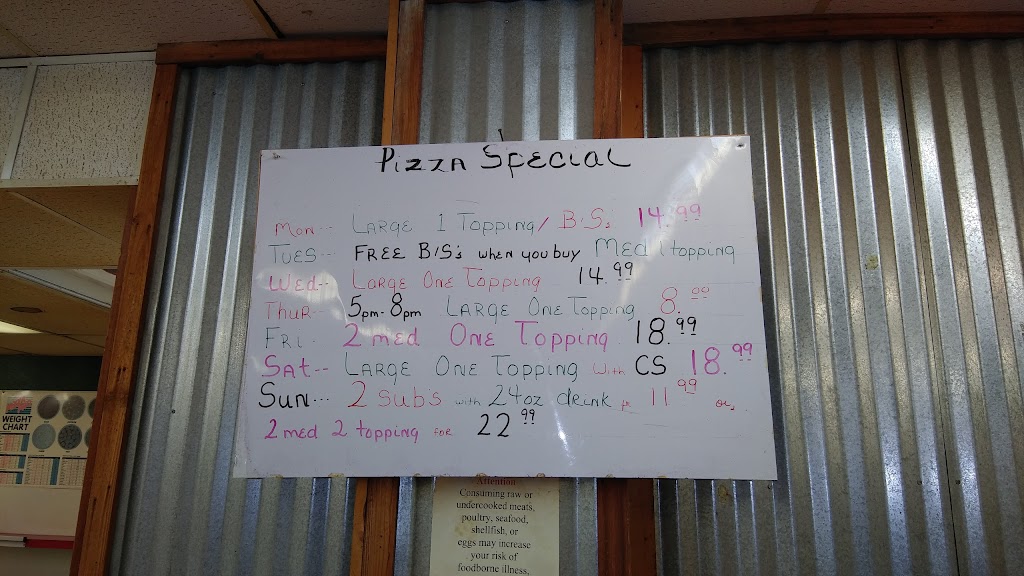 Pizza Special
Mon-- Large 1 Topping/ B'S, 14.99
Tues-- Free B'S's when you buy Med 1 topping
Wed-- Large One Topping 14.99
Thur-- 5pm-8pm Large One Topping 8.00
Fri- 2 med One Topping 18.99
Sat-- Large One Topping with CS 18.99
Sun--- 2 subs with 24oz drunk fr 11.99 or,
2 med 2 topping for 22.99
Attention
Consuming raw or
undercooked meats,
poultry, seafood,
shellfish, or
eggs may increase
your risk of
foodborne illness,
WEIGHT
CHART